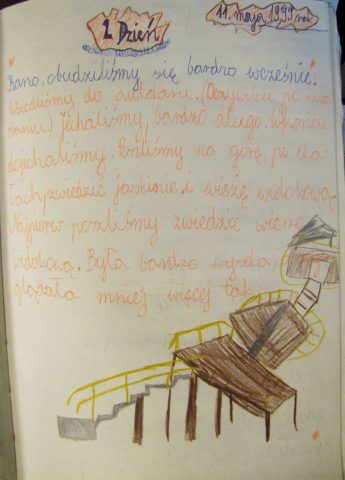 2. Dzień
11. maja 1999 rok
Rano, obudziliśmy się bardzo wcześnie.
Wsiedliśmy do autokaru. (Oczywiście po śnia
daniu.) Jechaliśmy, bardzo długo. Wkońcu
dojechaliśmy. Poszliśmy na górę po ska
łach, zwiedzić jaskinie i wieżę widokową.
Najpierw poszliśmy zwiedzić wieżę
widokową. Była bardzo wysoka,
glądała mniej więcej tak